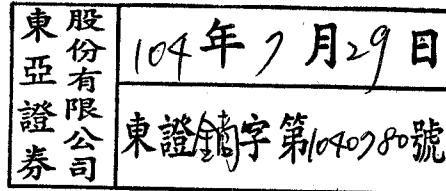 東亞證券
股份有限公司
104年7月29日
東證銷字第1040780號